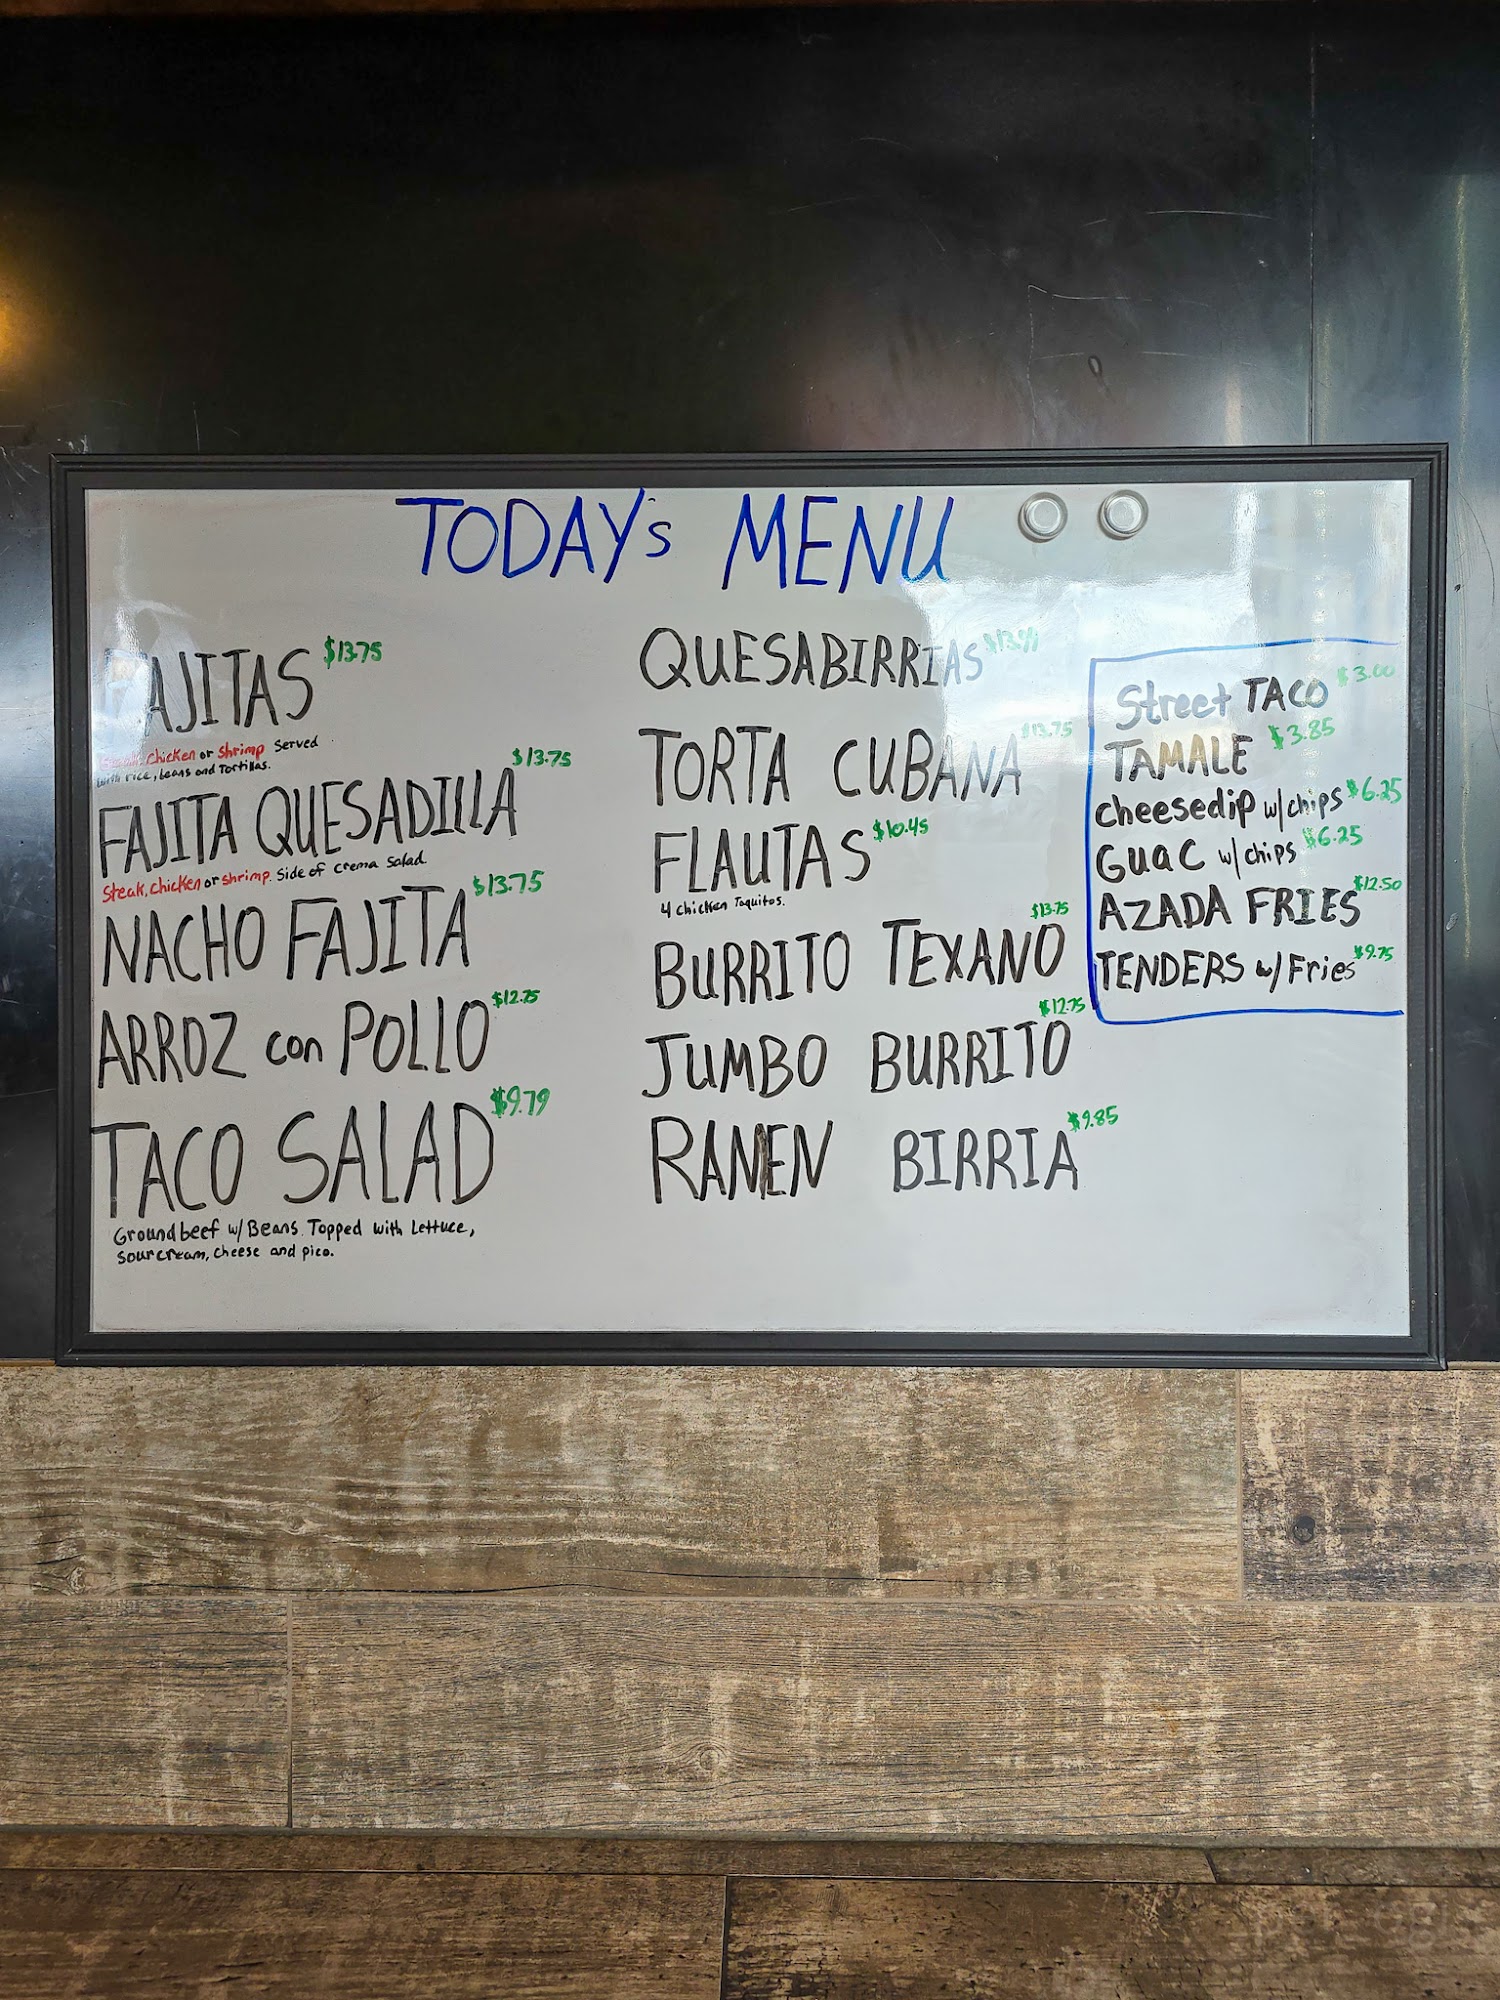 TODAY's MENU
FAJITAS $13.75
Steak, Chicken or Shrimp Served
with rice, beans and Tortillas.
FAJITA QUESADILLA $13.75
Steak, Chicken or shrimp. Side of crema Salad.
NACHO FAJITA $13.75
ARROZ con POLLO $12.75
TACO SALAD $9.79
Ground beef w/ Beans. Topped with Lettuce,
sourcream, cheese and pico.
QUESABIRRIAS
TORTA CUBANA $13.75
FLAUTAS $10.45
4 chicken Taquitos.
BURRITO TEXANO $13.75
JUMBO BURRITO $12.75
RAMEN BIRRIA $9.85
Street TACO $3.00
TAMALE $3.85
cheesedip w/chips $6.25
GUAC w/chips $6.25
AZADA FRIES $12.50
TENDERS w/Fries $9.75